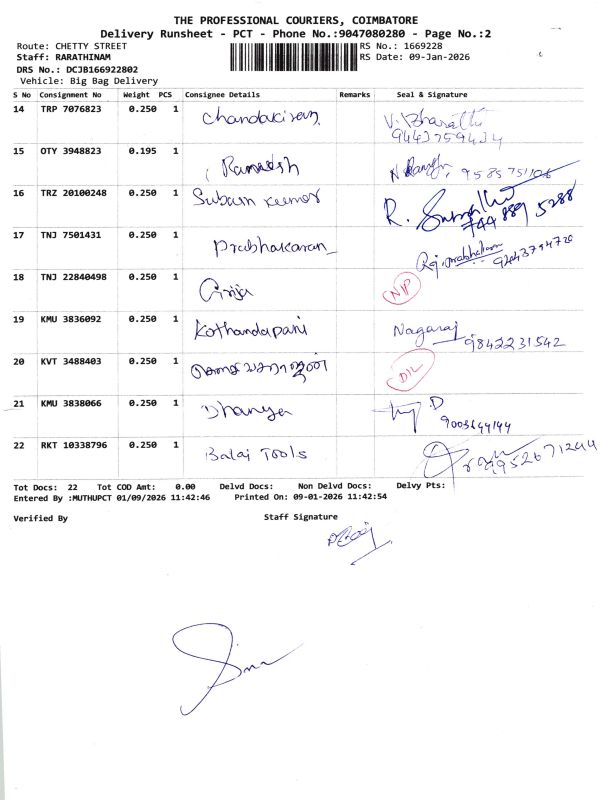 THE PROFESSIONAL COURIERS, COIMBATORE
Delivery Runsheet - PCT - Phone No.:9047080280 - Page No.:2
Route: CHETTY STREET
RS No.: 1669228
Staff: RARATHINAM
RS Date: 09-Jan-2026
DRS No.: DCJB166922802
Vehicle: Big Bag Delivery
S No Consignment No Weight PCS Consignee Details Remarks Seal & Signature
14 TRP 7076823 0.250 1 V. Bharathi
9443759434
15 OTY 3948823 0.195 1 Ramesh
16 TRZ 20100248 0.250 1 R.
17 TNJ 7501431 0.250 1 Prabhakaran
18 TNJ 22840498 0.250 1 Girija NP
19 KMU 3836092 0.250 1 Kothandapani Nagaraj
9842231542
20 KVT 3488403 0.250 1 D/L
21 KMU 3838066 0.250 1 Dhanya D
9003644144
22 RKT 10338796 0.250 1 Balaji Tools
9952671244
Tot Docs: 22 Tot COD Amt: 0.00 Delvd Docs: Non Delvd Docs: Delvy Pts:
Entered By :MUTHUPCT 01/09/2026 11:42:46 Printed On: 09-01-2026 11:42:54
Verified By Staff Signature